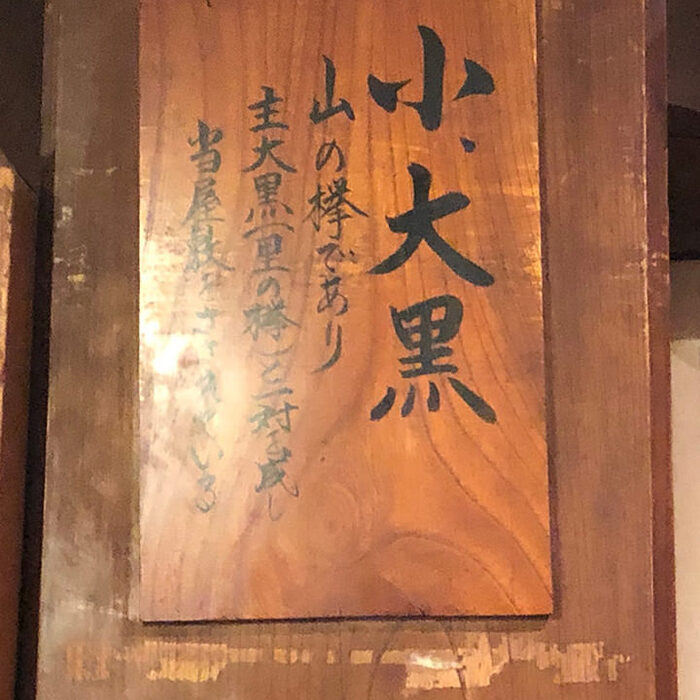 小大黒
山の欅であり
主大黒(里の欅)と一対を成し
当屋敷をささえている